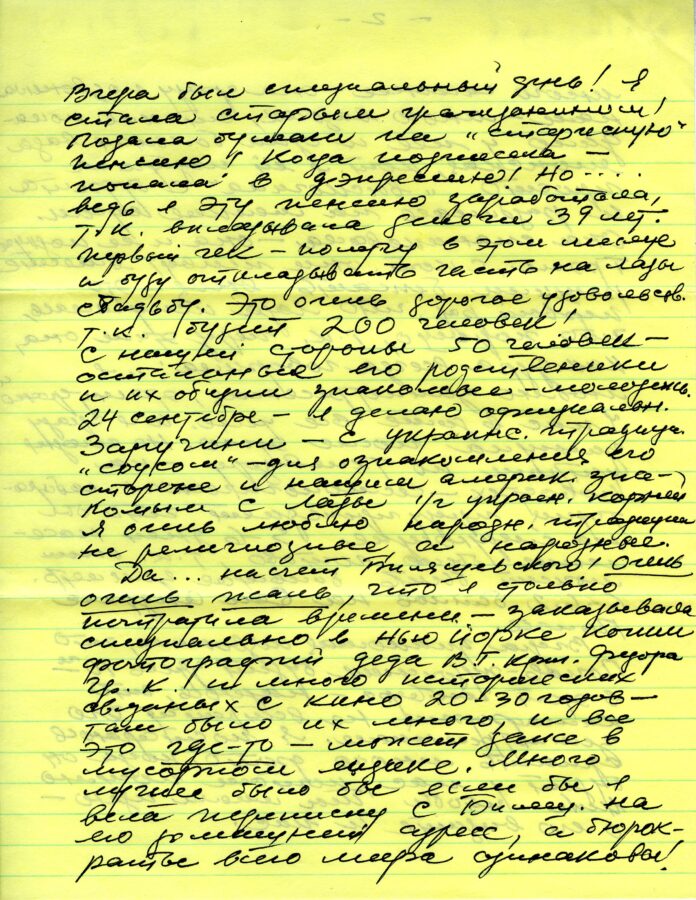 Вчера был специальный день! Я
стала старым гражданином!
Подала бумаги на „старческую"
пенсию! Когда подписала –
попала в дэпрессию! Но ....
ведь я эту пенсию заработала,
т.к. вкладывала деньги 39 лет.
первый чек – получу в этом месяце
и буду откладывать часть на Лазы
свадьбу. Это очень дорогое удовольств.
т.к. будит 200 человек!
С нашей стороны 50 человек –
остальные его родственики
и их общии знакомые – молодежь.
24 сентября – я делаю официальн.
Заручини – с украинс. традиц.
"соусом" – для ознакомления его
стороне и нашим америк. зна-
комым с Лазы 1/2 украен. корней
Я очень люблю народн. традиции
не религиозные а народные.
Да... насчет Билящевского! Очень
очень жаль, что я столько
потратила времени – заказывала
специально в Нью Йорке копии
фотографий деда В.Г. Крич. Федора
Гр. К. и много исторических
связаных с кино 20-30 годов –
там было их много, и все
это где-то – может даже в
мусорном ящыке. Много
лучше было бы если бы я
вела переписку с Билящ. на
его домашний адресс, а бюрок-
раты всего мира одинаковы!